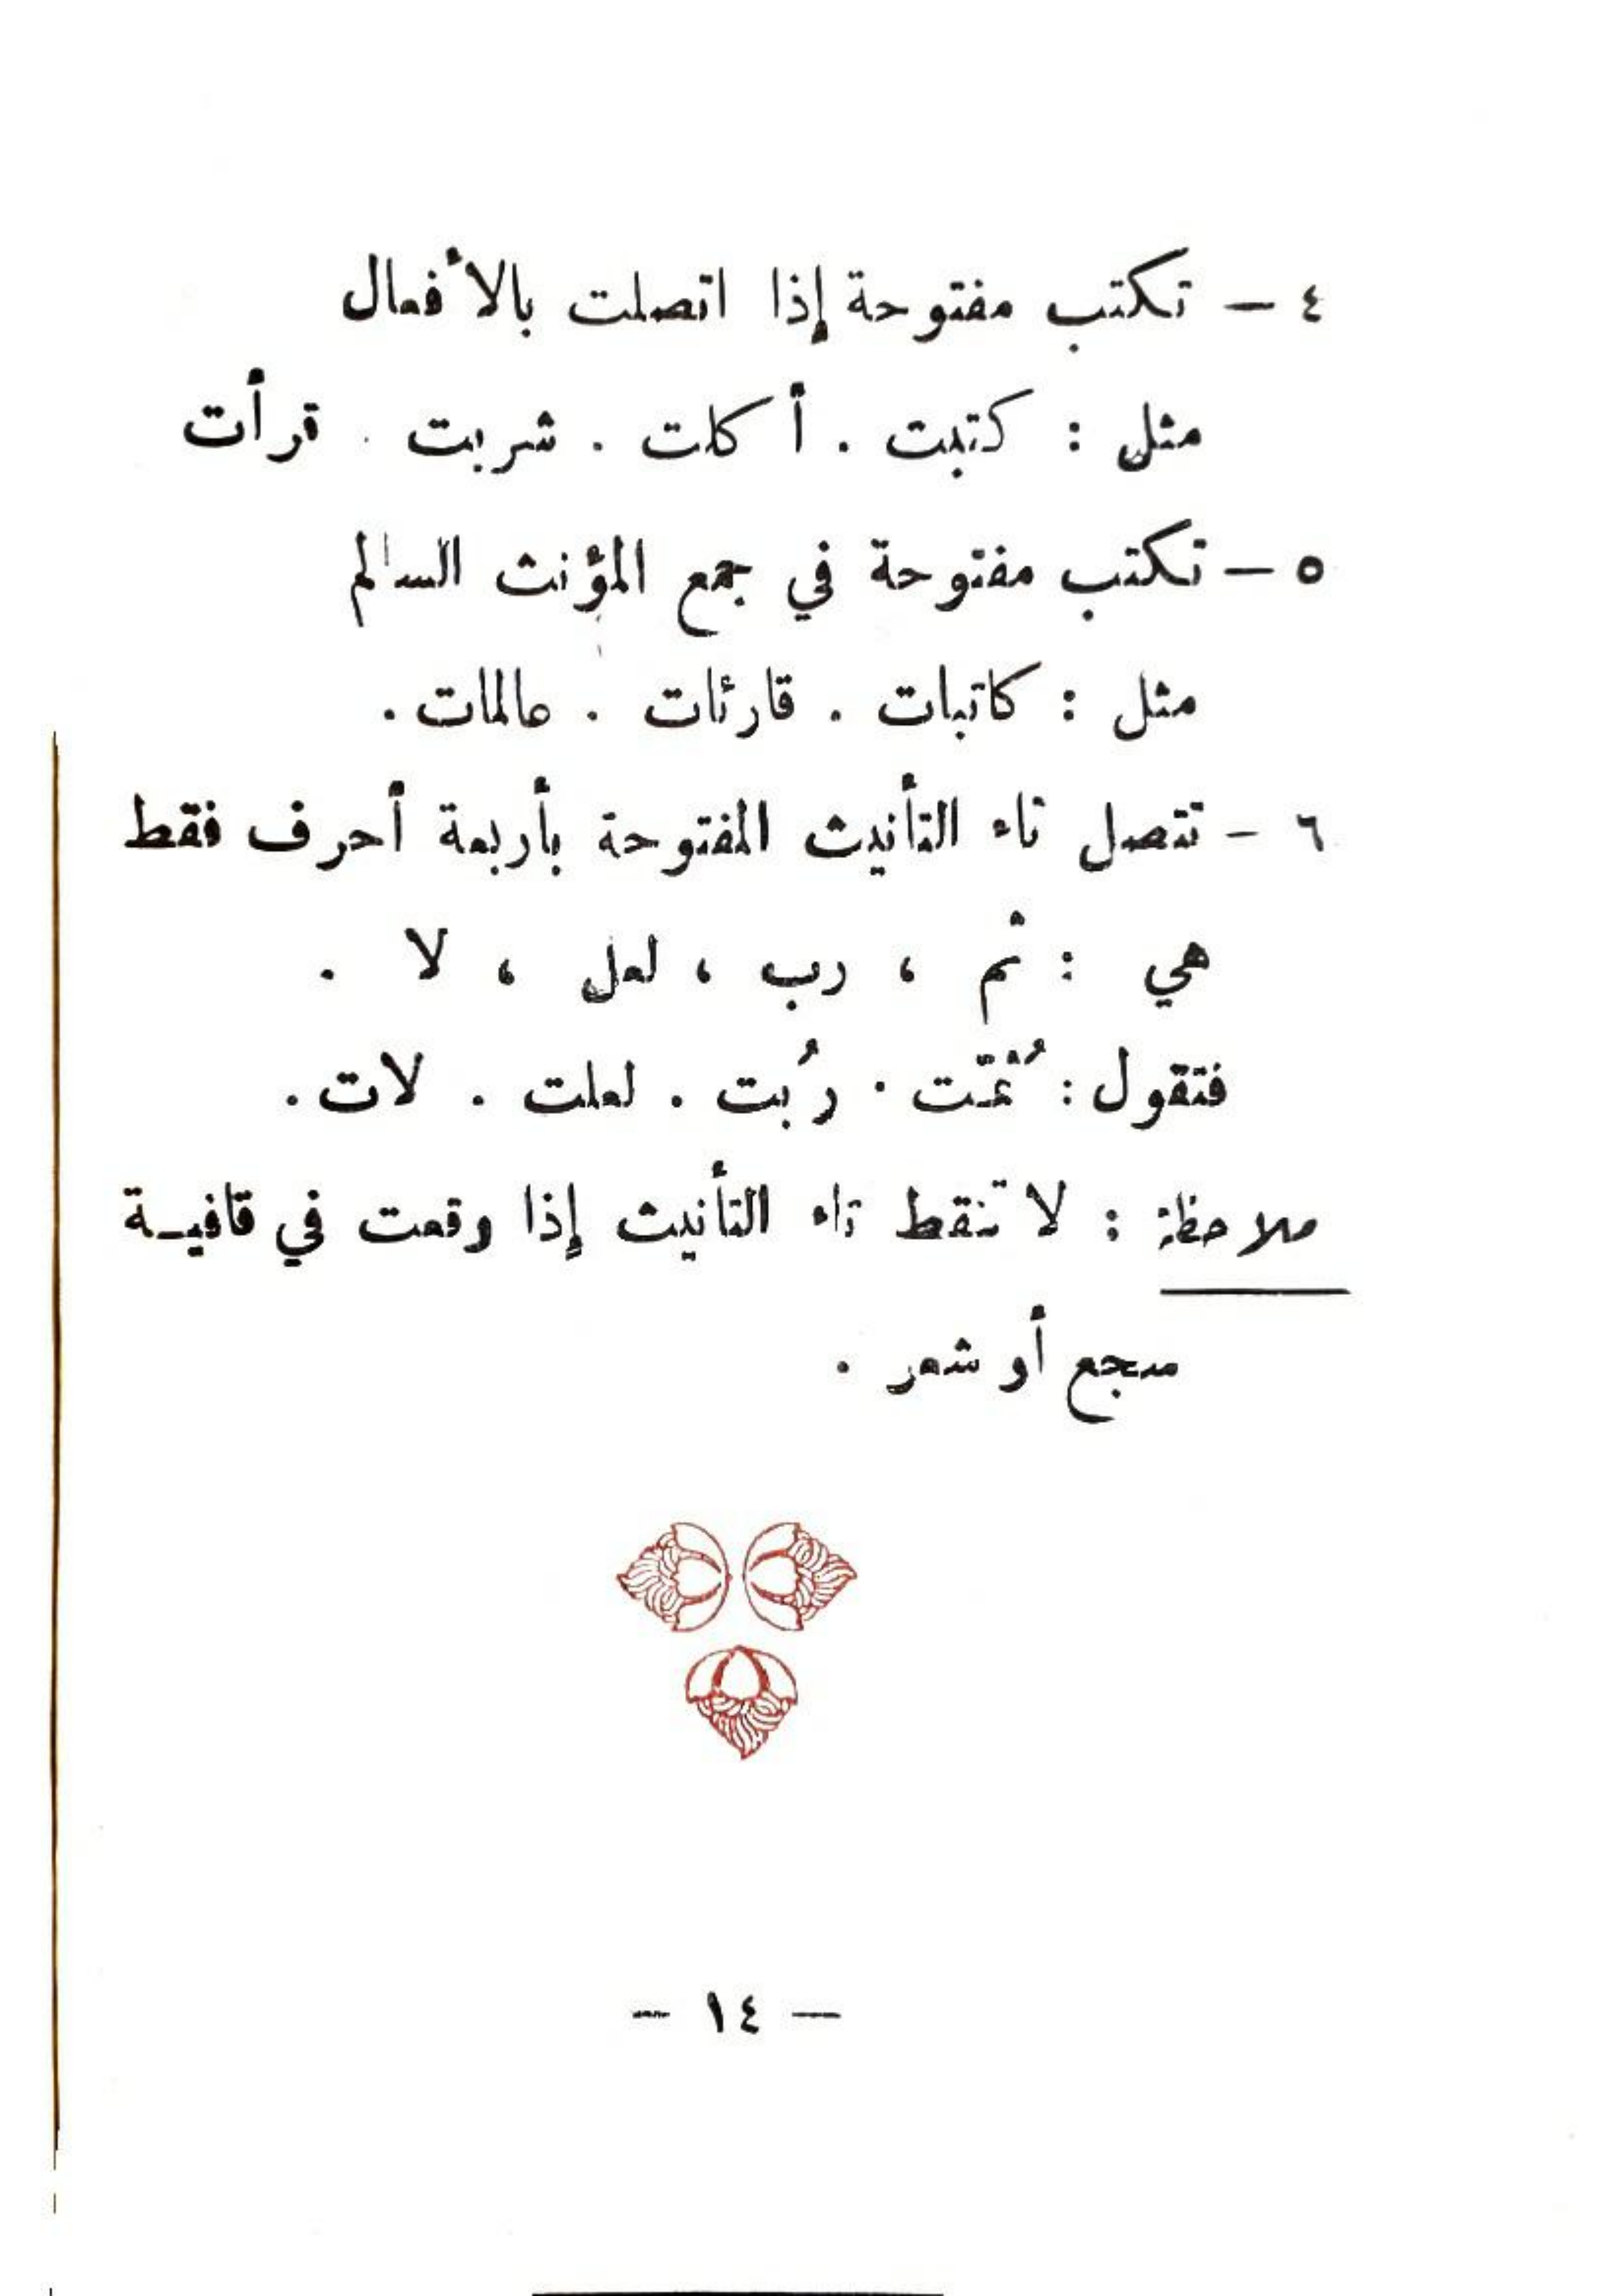 ٤ – تكتب مفتوحة إذا اتصلت بالأفعال
مثل : كتبت . أكلت . شربت . قرأت
٥ – تكتب مفتوحة في جمع المؤنث السالم
مثل : كاتبات . قارئات . عالمات .
٦ – تتصل تاء التأنيث المفتوحة بأربعة أحرف فقط
هي : ثم ، رب ، لعل ، لا .
فتقول : ثُمّت . رُبت . لعلت . لات .
ملاحظة : لا تنقط تاء التأنيث إذا وقعت في قافيـة
سجع أو شعر .
– ١٤ –